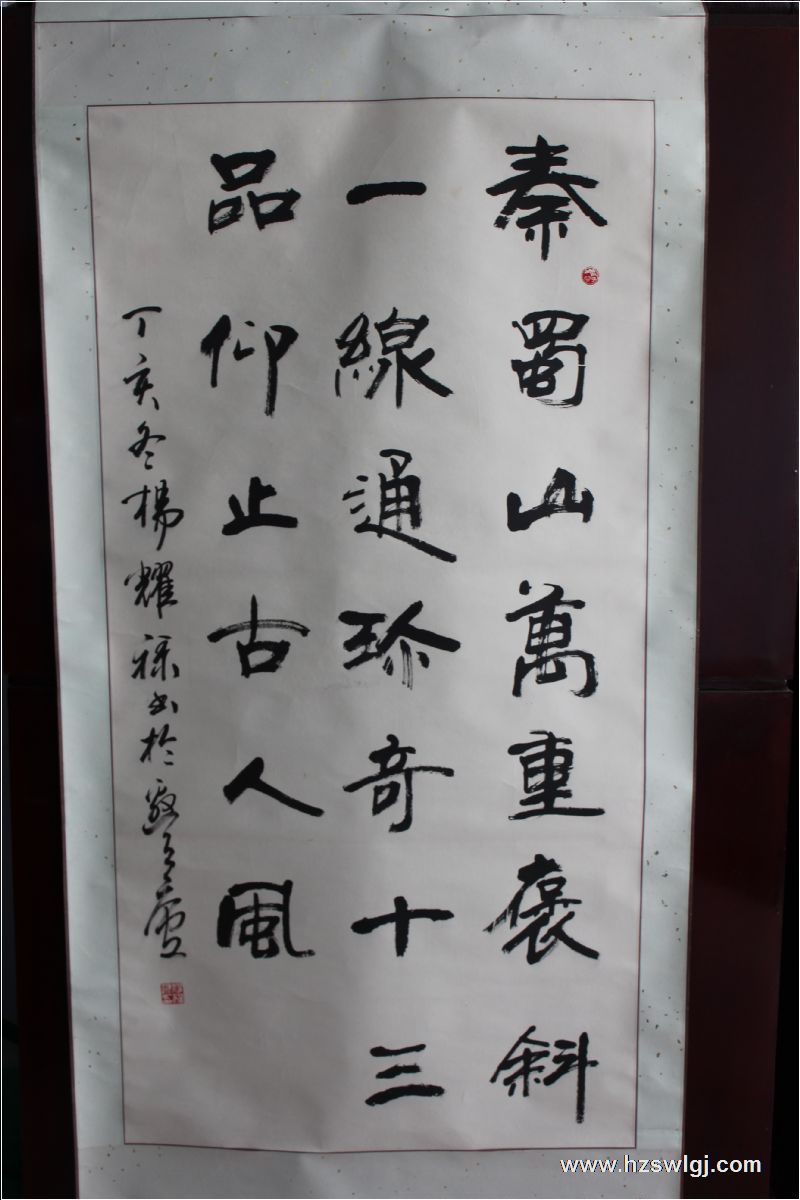 秦蜀山萬重褒斜
一線通珎奇十三
品仰止古人風
丁亥冬楊耀祿书於
www.hzswlgj.com